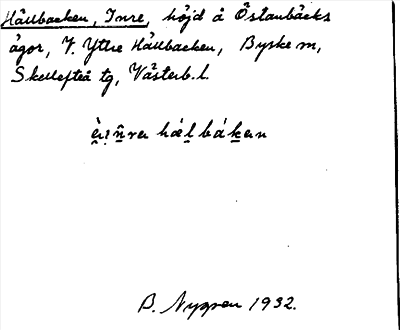 Hällbacken, Inre, höjd å Östanbäcks
ägor, V. Yttre Hällbacken, Byske sn,
Skellefteå tg, Västerb. l.
hálbákan
B. Nygren 1932.